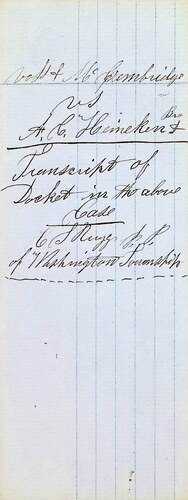 & Mc Cembridge
vs
A. C. Heineken & Bro
Transcript of
Docket in the above
Case
C S
of Washington Township